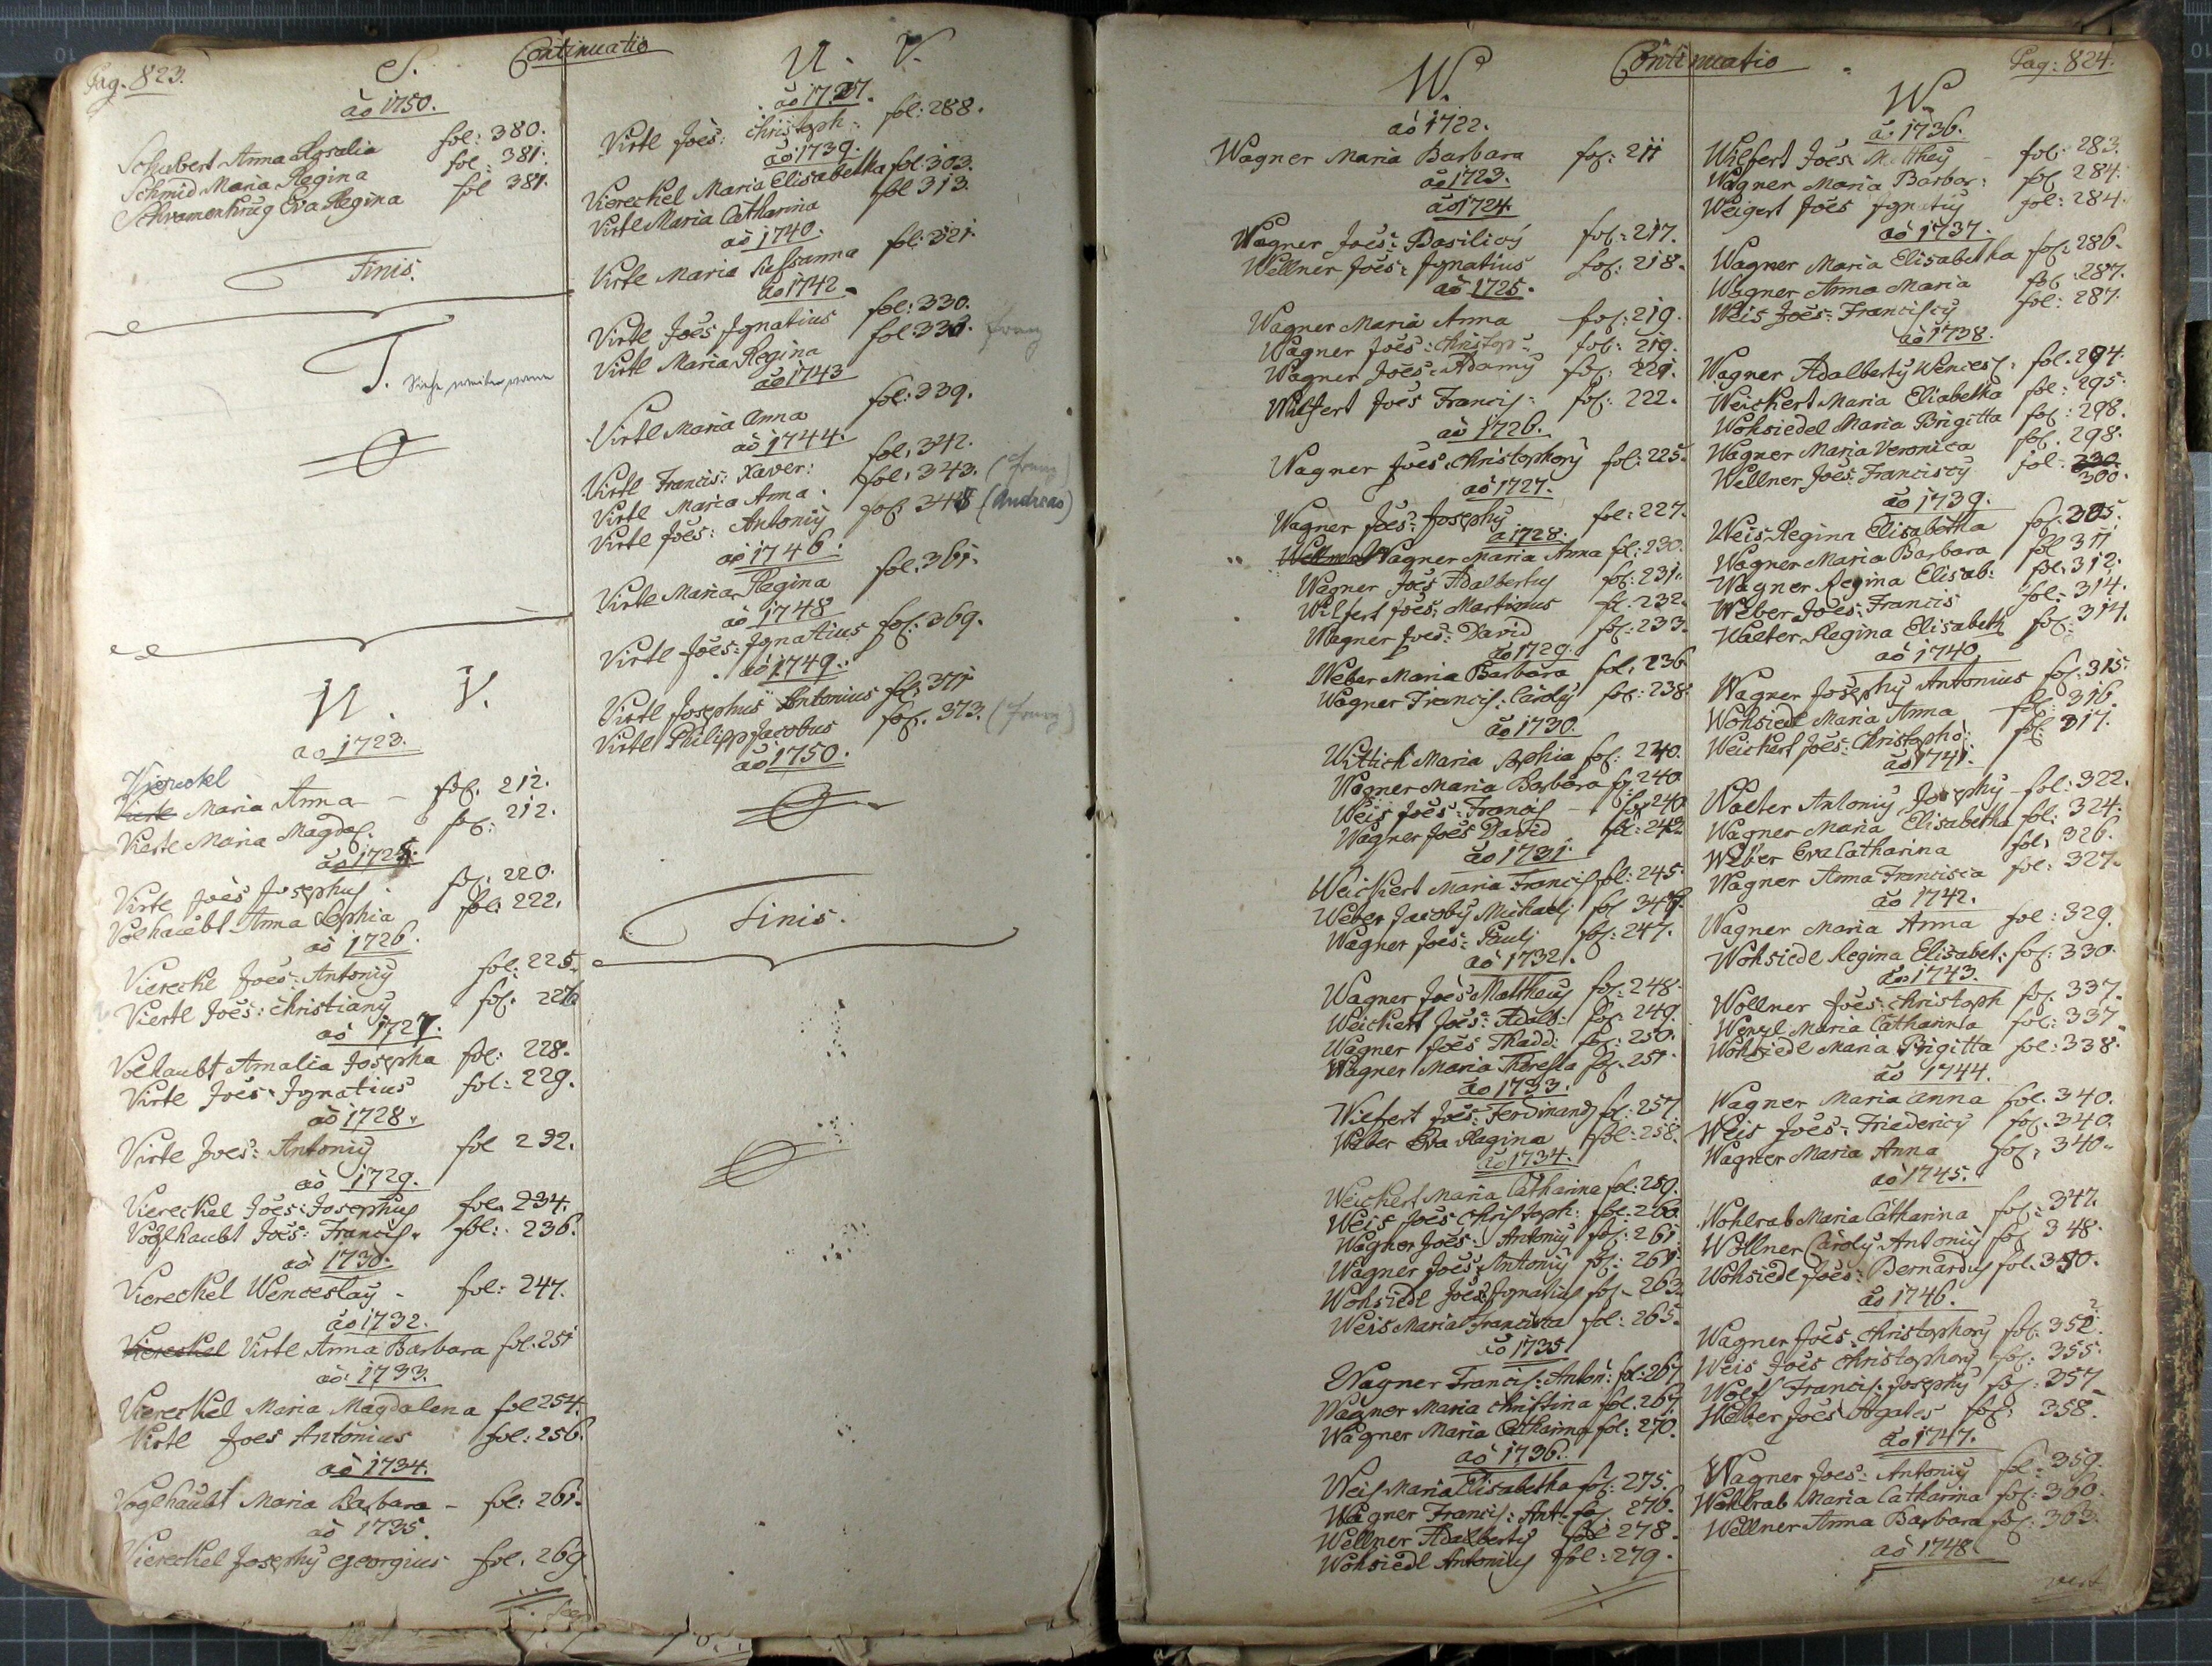 Pag. 823.
Continuatio
S.
ao 1750.
Schubert Anna Rosalia fol: 380.
Schmid Maria Regina fol: 381.
Schramenkrug Eva Regina fol 381.
Finis.
T.
U. V.
ao 1723.
Viereckl
Virtl Maria Anna - fol. 212.
Viertl Maria Magdal. fol: 212.
ao 1725.
Virtl Joes Josephus fol: 220.
Volhaubt Anna Sophia fol: 222.
ao 1726.
Viereckl Joes: Antonij fol: 225.
Viertl Joes: Christianj fol: 226
ao 1727.
Volhaubt Amalia Josepha fol: 228.
Virtl Joes: Ignatius fol: 229.
ao 1728.
Virtl Joes: Antonij fol 232.
ao 1729.
Viereckel Joes: Josephus fol. 234.
Voglhaubt Joes: Francis. fol: 236.
ao 1730.
Viereckel Wenceslaj - fol: 247.
ao 1732.
Viereckel Virtl Anna Barbara fol. 251
ao: 1733.
Viereckel Maria Magdalena fol 254.
Virtl Joes Antonius fol: 256.
ao 1734.
Voglhaubt Maria Barbara - fol: 261.
ao 1735.
Viereckel Josephj Georgius fol. 269
U. V.
ao 1737.
Virtl Joes: Christoph: fol: 288.
ao 1739.
Viereckel Maria Elisabetha fol 303.
Virtl Maria Catharina fol 313.
ao 1740.
Virtl Maria Sussanna fol: 321.
ao 1742
Virtl Joes Ignatius fol: 330.
Virtl Maria Regina fol 336. Franz
ao 1743
Virtl Maria Anna fol: 339.
ao 1744.
Virtl Francis: Xaver: fol. 342.
Virtl Maria Anna fol. 343. (Franz)
Virtl Joes: Antonij fol: 348 (Andreas)
ao 1746.
Virtl Maria Regina fol. 361.
ao 1748
Virtl Joes: Ignatius fol: 369.
ao 1749.
Virtl Josephus Antonius fol: 371
Virtl Philipp Jacobus fol. 373. (Franz)
ao 1750.
Finis.
Continuatio
Pag: 824.
W.
ao 1722.
Wagner Maria Barbara fol: 211
ao 1723.
ao 1724.
Wagner Joes: Basilios fol: 217.
Wellner Joes: Ignatius fol: 218.
ao 1725.
Wagner Maria Anna fol: 219.
Wagner Joes: Christop: fol: 219.
Wagner Joes: Adamj fol: 221.
Wilfert Joes Francis: fol: 222.
ao 1726.
Wagner Joes. Christophorj fol: 225.
ao 1727.
Wagner Joes: Josephj fol: 227.
a 1728.
Wagner Maria Anna fol: 230.
Wagner Joes Adalbertus fol: 231.
Wilfert Joes. Martinus fl. 232.
Wagner Joes: David fol: 233.
ao 1729.
Weber Maria Barbara fol. 236
Wagner Francis: Carolj fol: 238
ao 1730.
Wittich Maria Sophia fol: 240.
Wagner Maria Barbara fol: 240
Weis Joes: Francis - fol: 240
Wagner Joes David fol: 243
ao 1731.
Weickert Maria Francis fol: 245.
Weber Jacobj Michaelj fol 347.
Wagner Joes: Paulj fol: 247.
ao 1732.
Wagner Joes Mattheus fol: 248.
Weickert Joes: Adalb: fol: 249.
Wagner Joes Thadd: fol: 250.
Wagner Maria Theresia fol. 251
ao 1733.
Wilfert Joes: Ferdinand fol: 257.
Weber Eva Regina fol: 258.
ao 1734.
Weickert Maria Catharina fol: 259.
Weis Joes Christoph: fol: 260.
Wagner Joes: Antonij fol: 261
Wagner Joes: Antonij fol: 261.
Wohsiedl Joes Ignatius fol - 263.
Weis Maria Francisca fol: 265.
ao 1735
Wagner Francis: Anton: fol: 267
Wagner Maria Christina fol. 267
Wagner Maria Catharina fol: 270.
ao 1736.
Weis Maria Elisabetha fol: 275.
Wagner Francis: Ant: fol. 276.
Wellner Adalbertj fol 278.
Wohsiedl Antonius fol: 279.
W.
a: 1736.
Wilfert Joes Matthej - fol: 283.
Wagner Maria Barbar: fol 284.
Weigert Joes Ignatij fol: 284.
ao 1737.
Wagner Maria Elisabetha fol: 286.
Wagner Anna Maria fol. 287.
Weis Joes: Franciscj fol: 287.
ao 1738.
Wagner Adalbertj Wencesl: fol. 294.
Weickert Maria Eliabetha fol: 295.
Wohsiedel Maria Brigitta fol: 298.
Wagner Maria Veronica fol. 298.
Wellner Joes: Franciscj fol: 330.
300.
ao 1739.
Weis Regina Elisabetha fol: 305.
Wagner Maria Barbara fol 311
Wagner Regina Elisab: fol. 312.
Weber Joes: Francis fol: 314.
Walter Regina Elisabeth fol: 314.
ao 1740.
Wagner Josephj Antonius fol: 315.
Wohsiedl Maria Anna fol: 316.
Weickert Joes: Christopho: fol: 317.
ao 1741.
Walter Antonij Josephj - fol: 322.
Wagner Maria Elisabetha fol: 324.
Weber Eva Catharina fol. 326.
Wagner Anna Francisca fol: 327.
ao 1742.
Wagner Maria Anna fol: 329.
Wohsiedl Regina Elisabet: fol: 330.
ao 1743.
Wollner Joes: Christoph fol. 337.
Wenzl Maria Catharina fol: 337.
Wohsiedl Maria Brigitta fol: 338.
ao 1744.
Wagner Maria Anna fol. 340.
Weis Joes: Friedericj fol. 340.
Wagner Maria Anna fol, 340.
ao 1745.
Wohlrab Maria Catharina fol: 347.
Wollner Carolj Antonij fol 348.
Wohsiedl Joes: Bernardus fol. 350.
ao 1746.
Wagner Joes: Christophorj fol: 352.
Weis Joes Christophorj fol: 355.
Wolf Francis: Josephj fol: 357
Weber Joes Agates fol: 358.
ao 1747.
Wagner Joes: Antonij fol: 359.
Wohlrab Maria Catharina fol: 360.
Wellner Anna Barbara fol: 363.
ao 1748.
vert